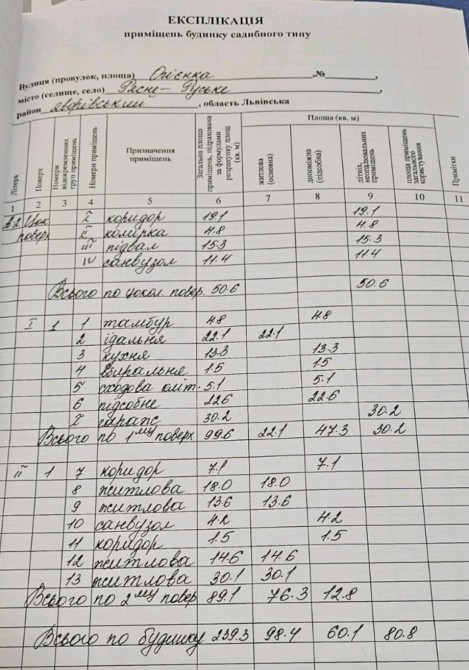 ЕКСПЛІКАЦІЯ
приміщень будинку садибного типу
Вулиця (провулок, площа) Опієнка ,№ ,
місто (селище, село) Рясне-Руське
район Яворівський , область Львівська
Літера Поверх Номери відокремлених груп приміщень Номери приміщень Призначення приміщень Загальна площа приміщень, підрахована за формулами розрахунку площ (кв. м) Площа (кв. м) житлова (основна) допоміжна (підсобна) літніх, неопалювальних приміщень площа приміщень загального користування Примітки
1 2 3 4 5 6 7 8 9 10 11
А2 Цок. I коридор 19.1 19.1
поверх II комірка 4.8 4.8
III підвал 15.3 15.3
IV санвузол 11.4 11.4
Всього по цокол. повер. 50.6 50.6
I 1 1 тамбур 4.8 4.8
2 їдальня 22.1 22.1
3 кухня 13.3 13.3
4 вбиральня 1.5 1.5
5 сходова кліт. 5.1 5.1
6 підсобне 22.6 22.6
I гараж 30.2 30.2
Всього по 1му поверх 99.6 22.1 47.3 30.2
II 1 7 коридор 7.1 7.1
8 житлова 18.0 18.0
9 житлова 13.6 13.6
10 санвузол 4.2 4.2
11 коридор 1.5 1.5
12 житлова 14.6 14.6
13 житлова 30.1 30.1
Всього по 2му повер 89.1 76.3 12.8
Всього по будинку 239.3 98.4 60.1 80.8